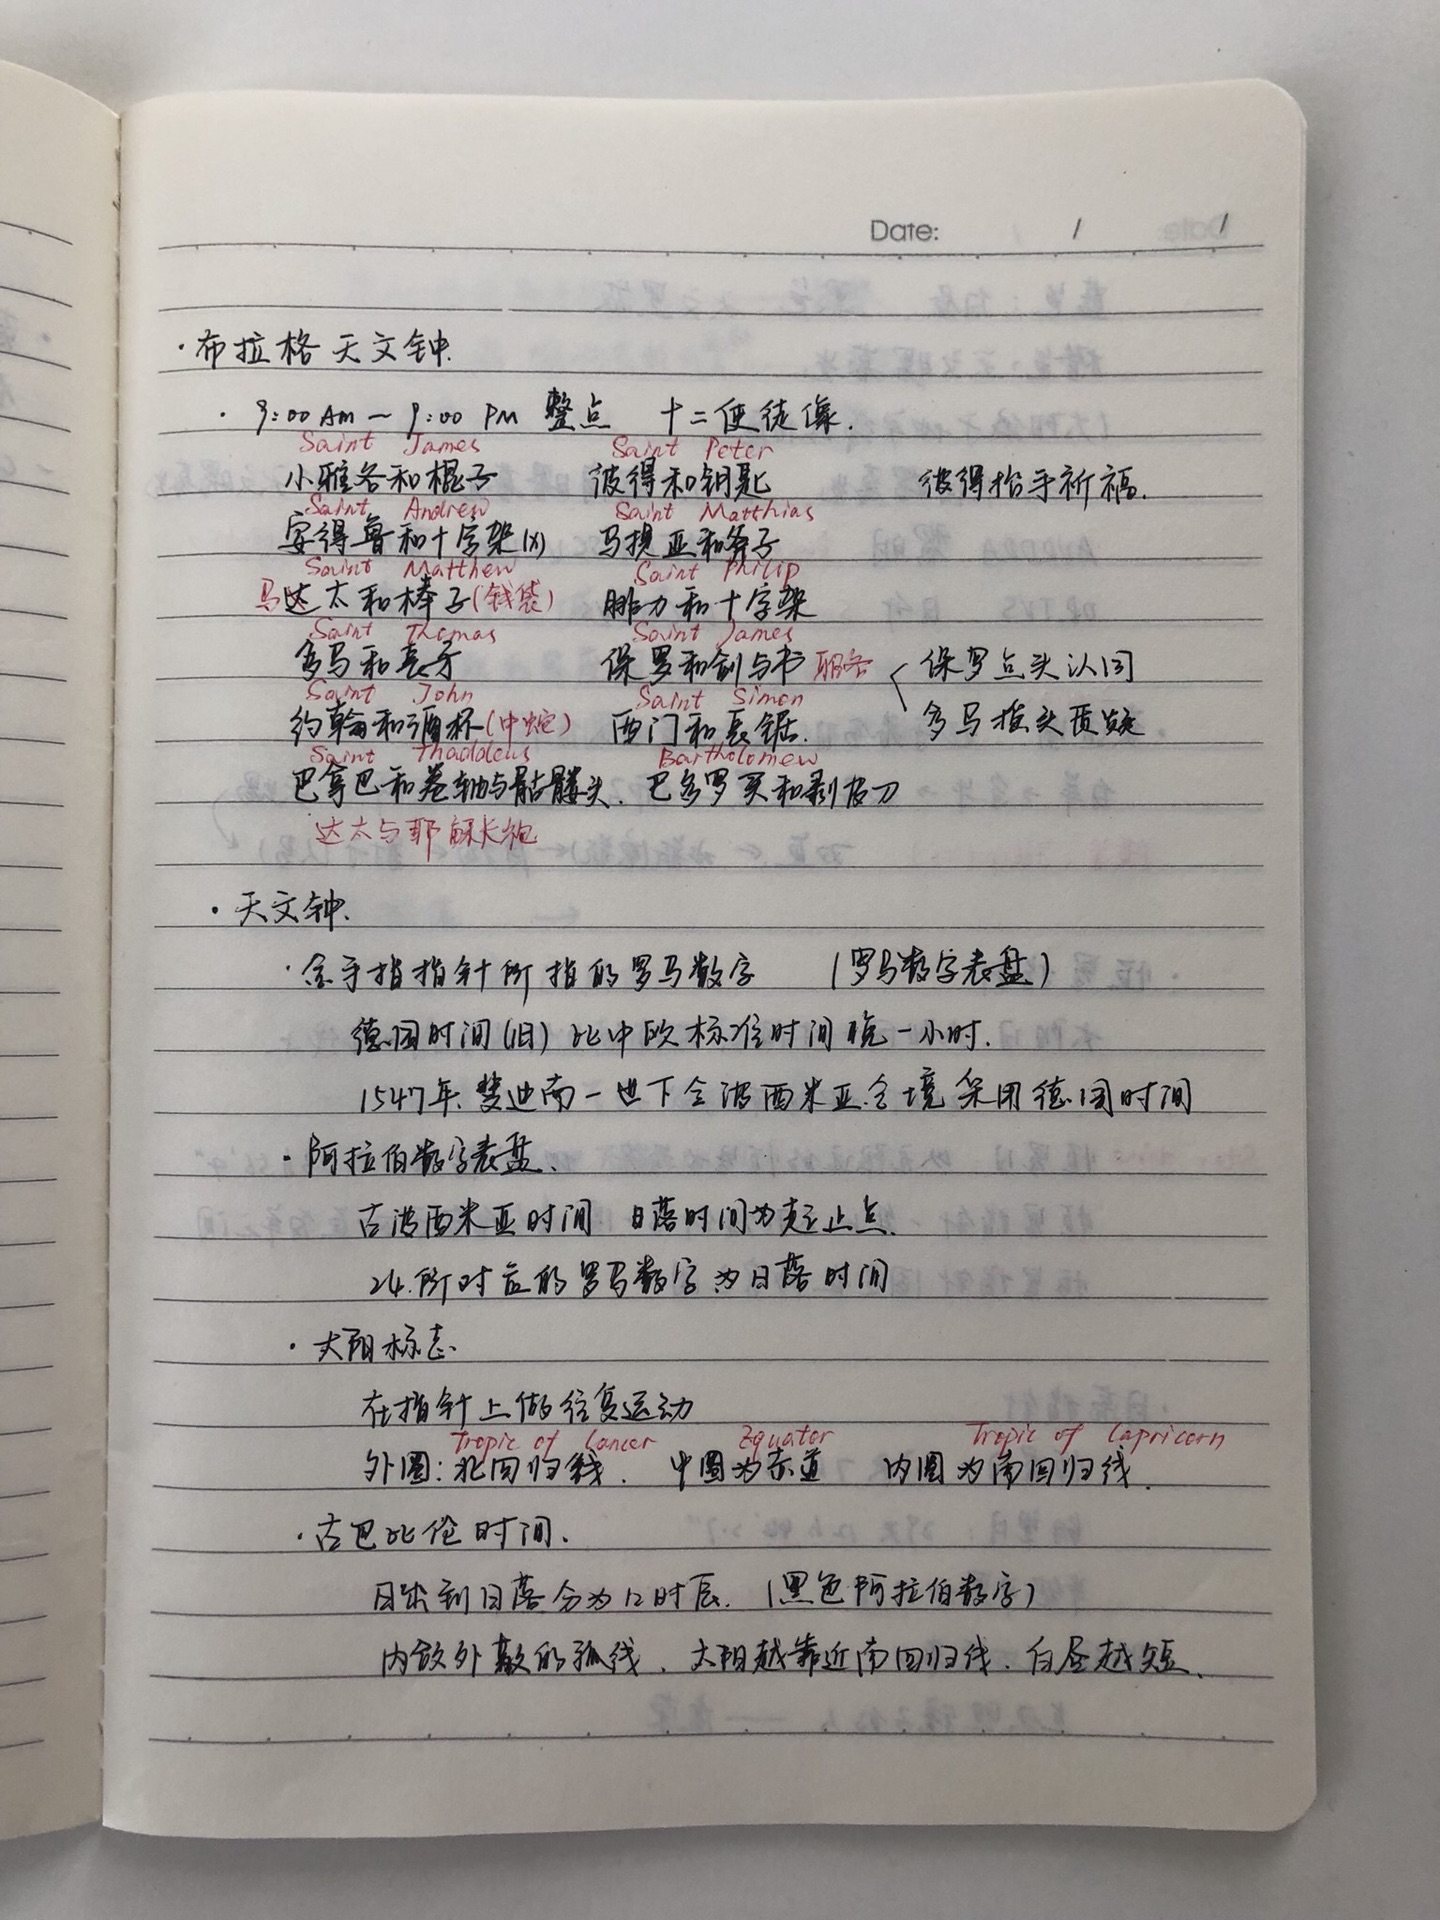 Date: / /
·布拉格天文钟.
· 9:00 AM ~ 9:00 PM 整点 十二使徒像.
Saint James Saint Peter
小雅各和棍子 彼得和钥匙 彼得抬手祈福.
Saint Andrew Saint Matthias
安得鲁和十字架(X) 马提亚和斧子
Saint Matthew Saint Philip
马达太和棒子(钱袋) 腓力和十字架
Saint Thomas Saint James
多马和长矛 保罗和剑与书 保罗点头认同
Saint John Saint Simon
约翰和酒杯(中蛇) 西门和长锯. 多马摇头质疑
Saint Thaddeus Bartholomew
巴拿巴和卷轴与骷髅头. 巴多罗买和剥皮刀
达太与耶稣长袍
· 天文钟.
· 金手指指针所指的罗马数字 (罗马数字表盘)
德国时间(旧) 比中欧标准时间晚一小时.
1547年,斐迪南一世下令波西米亚全境采用德国时间
· 阿拉伯数字表盘.
古波西米亚时间 日落时间为起止点.
24.所对应的罗马数字为日落时间
· 太阳标志.
在指针上做往复运动
Tropic of Cancer Equator Tropic of Capricorn
外圈:北回归线. 中圈为赤道 内圈为南回归线.
·古巴比伦时间.
日出到日落分为12时辰. (黑色阿拉伯数字)
内敛外散的弧线, 太阳越靠近南回归线, 白昼越短.